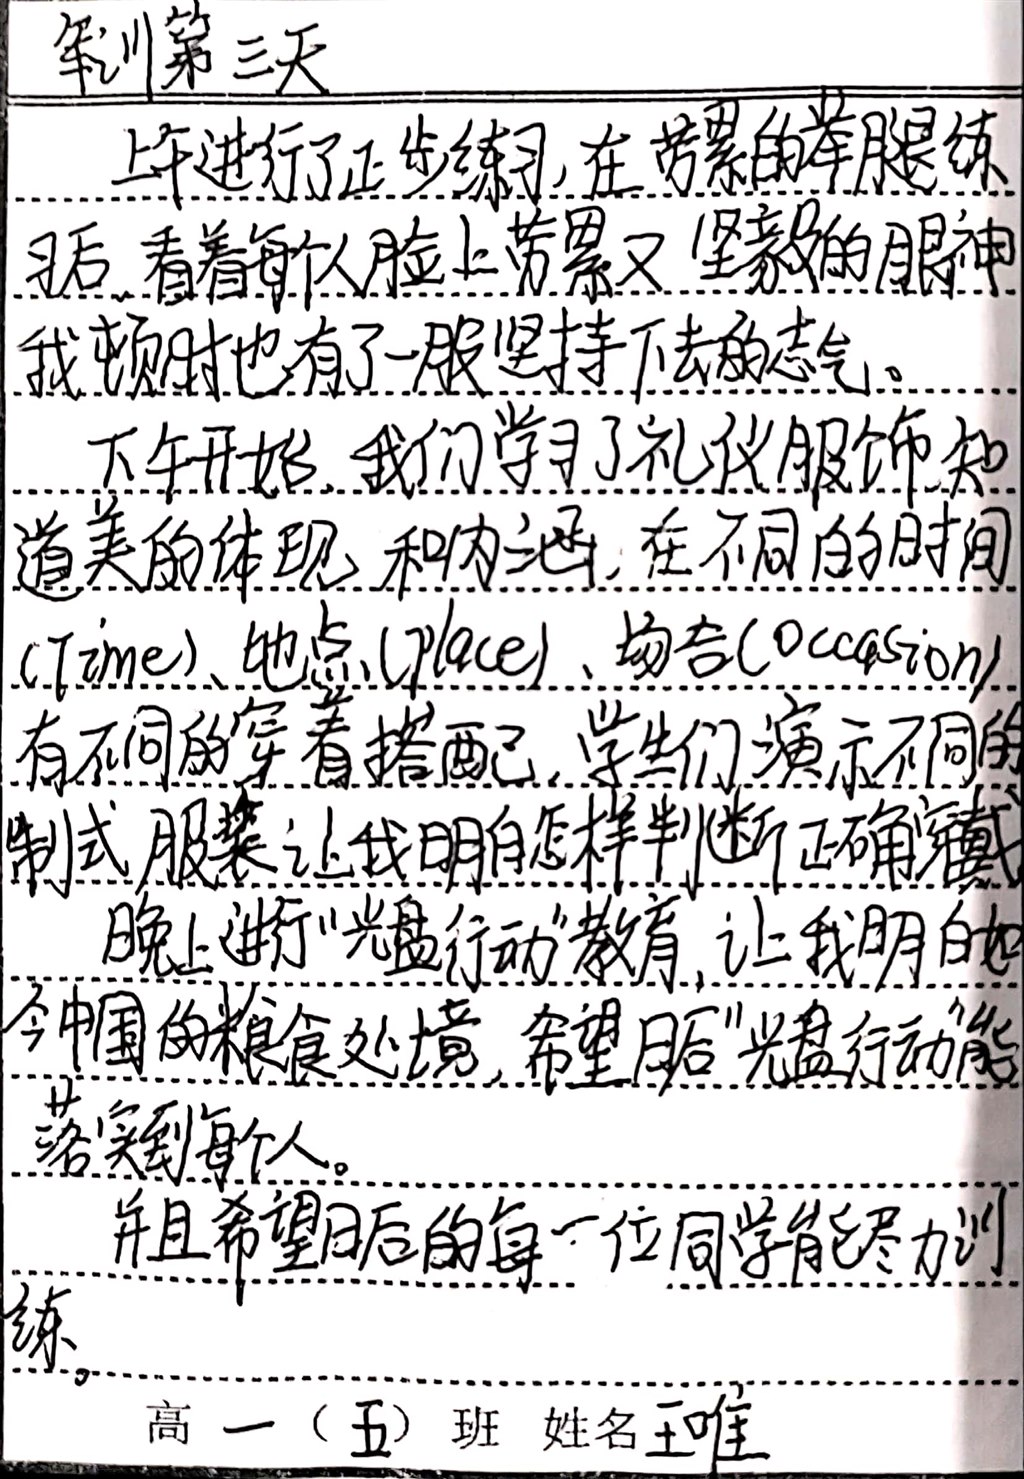 军训第三天
上午进行了正步练习,在劳累的举腿练
习后,看着每个人脸上劳累又坚毅的眼神
我顿时也有了一股坚持下去的志气。
下午开始,我们学习了礼仪服饰,知
道美的体现和内涵,在不同的时间
(Time)、地点(place)、场合(Occasion)
有不同的穿着搭配,学生们演示不同的
制式服装让我明白怎样判断正确穿戴
晚上进行“光盘行动”教育,让我明白如
今中国的粮食处境,希望日后“光盘行动”能
落实到每个人。
并且希望日后的每一位同学能尽力训
练。
高一(五)班 姓名王唯